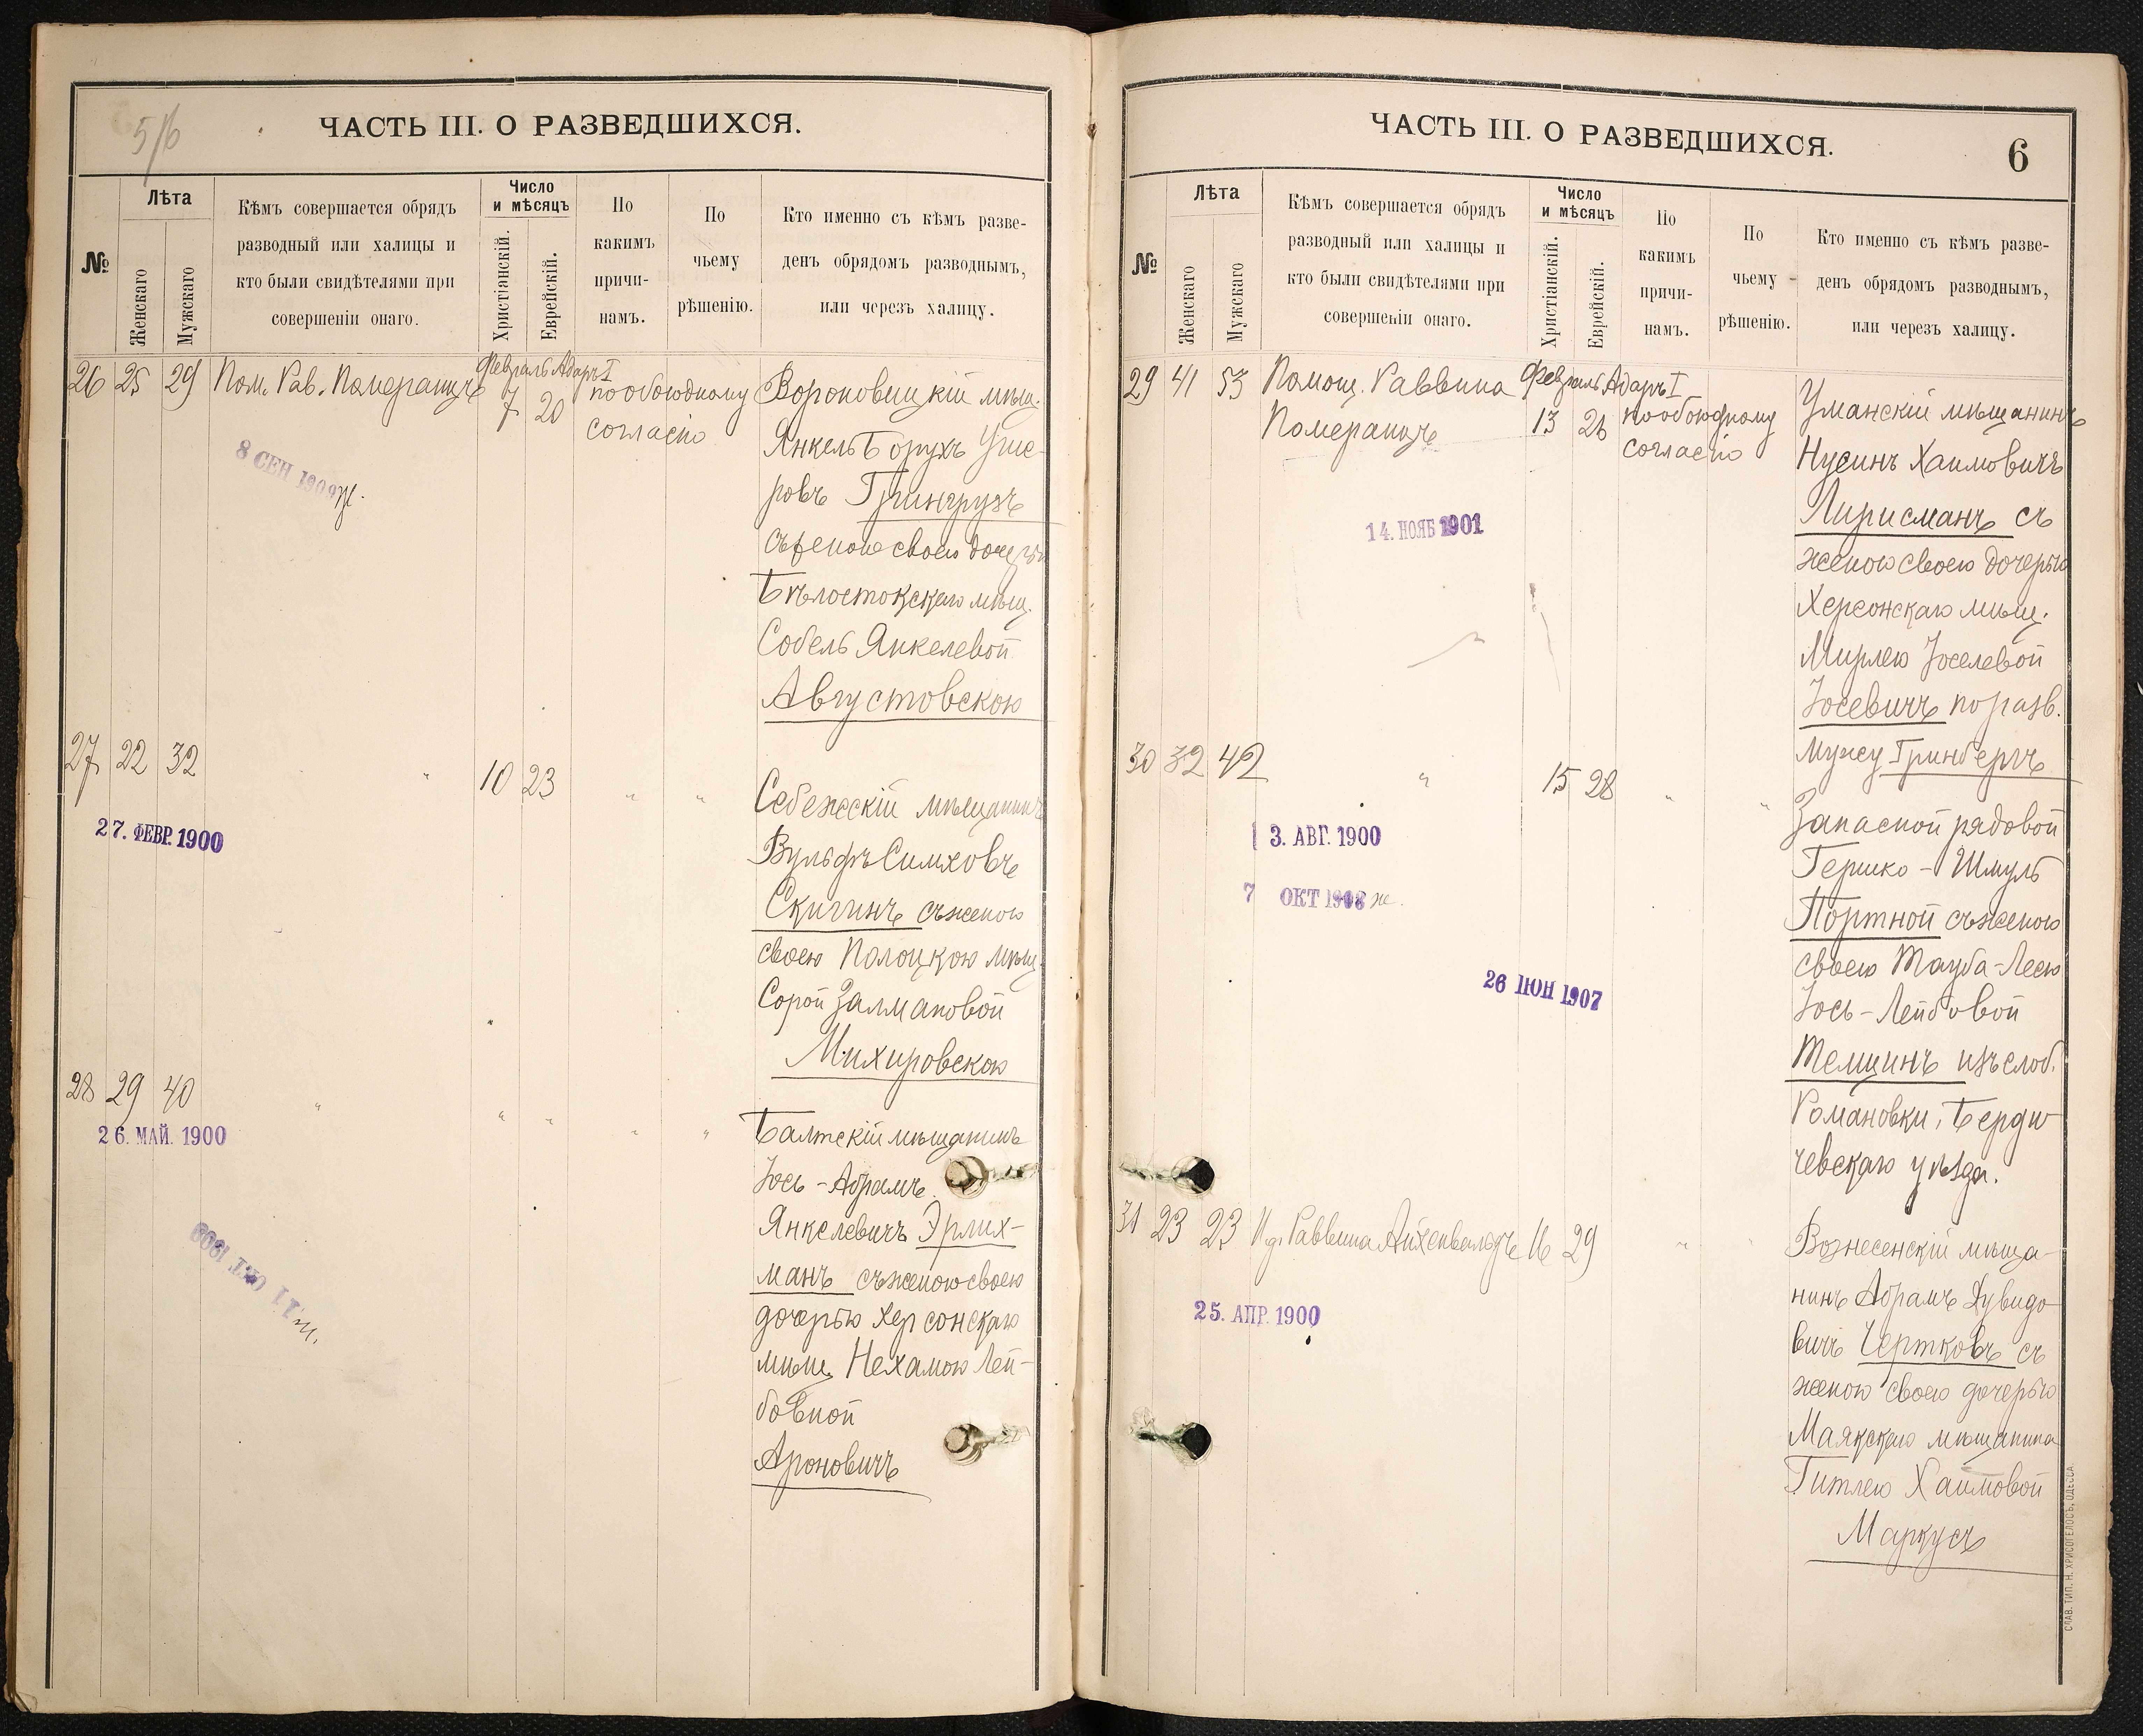 5/6
ЧАСТЬ III. О РАЗВЕДШИХСЯ.
№
Лѣта
Женскаго
Мужскаго
Кѣмъ совершается обрядъ
разводный или халицы и
кто были свидѣтелями при
совершеніи онаго.
Число
и мѣсяцъ
Христіанскій.
Еврейскій.
По
какимъ
причи-
намъ.
По
чьему
рѣшенію.
Кто именно съ кѣмъ разве-
денъ обрядомъ разводнымъ,
или черезъ халицу.
26 25 29 Пом. Рав. Померанцъ
Февраль Адаръ I
7 20
по обоюдному
согласію
Вороновицкій мѣщ.
Янкель Борухъ
Грингрузъ
съ женою своею дочерью
Бѣлостокскаго мѣщ.
Собель Янкелевой
Августовскою
8 СЕН 1909 ж.
27 22 32 " 10 23 " "
Себежскій мѣщанинъ
Вульфъ Симховъ
Скигинъ съ женою
своею Полоцкою мѣщ.
Сорой Залмановой
Михировскою
27. ФЕВР. 1900
28 29 40 " " " " "
Балтскій мѣщанинъ
Іось-Абрамъ
Янкелевичъ Эрлих-
манъ съ женою своею
дочерью Херсонскаго
мѣщ. Нехамою Лей-
бовной
Ароновичъ
26. МАЙ. 1900
11 ОКТ 1909
ЧАСТЬ III. О РАЗВЕДШИХСЯ.
6
№
Лѣта
Женскаго
Мужскаго
Кѣмъ совершается обрядъ
разводный или халицы и
кто были свидѣтелями при
совершеніи онаго.
Число
и мѣсяцъ
Христіанскій.
Еврейскій.
По
какимъ
причи-
намъ.
По
чьему
рѣшенію.
Кто именно съ кѣмъ разве-
денъ обрядомъ разводнымъ,
или черезъ халицу.
29 41 53 Помощ. Раввина
Померанцъ
Февраль Адаръ I
13 26
по обоюдному
согласію
Уманскій мѣщанинъ
Нусинъ Хаимовичъ
Лирисманъ съ
женою своею дочерью
Херсонскаго мѣщ.
Мирлею Іоселевой
Іосевичъ по разв.
мужу Гринбергъ
14. НОЯБ 1901
30 32 42 " 15 28 " "
Запасной рядовой
Гершко-Шмуль
Портной съ женою
своею Тауба-Леею
Іось-Лейбовой
Темцинъ изъ слоб.
Романовки, Берди
чевскаго уѣзда.
3. АВГ. 1900
7 ОКТ 1908 ж.
26 ІЮН 1907
31 23 23 И. д. Раввина Айхенвальдъ 16 29 "
Вознесенскій мѣща-
нинъ Абрамъ Дувидо-
вичъ Чертковъ съ
женою своею дочерью
Маякскаго мѣщанина
Гитлею Хаимовой
Маркусъ
25. АПР. 1900
СЛАВ. ТИП. Н. ХРИСОГЕЛОСЪ, ОДЕССА.